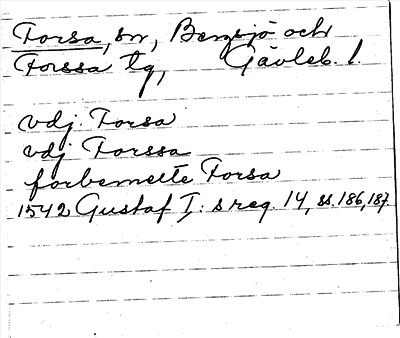 Forsa, sn, Bergsjö och
Forssa tg, Gävleb. l.
vdj. Forsa
vdj Forssa
forbemelte Forsa
1542 Gustaf I:s reg. 14, ss. 186, 187.